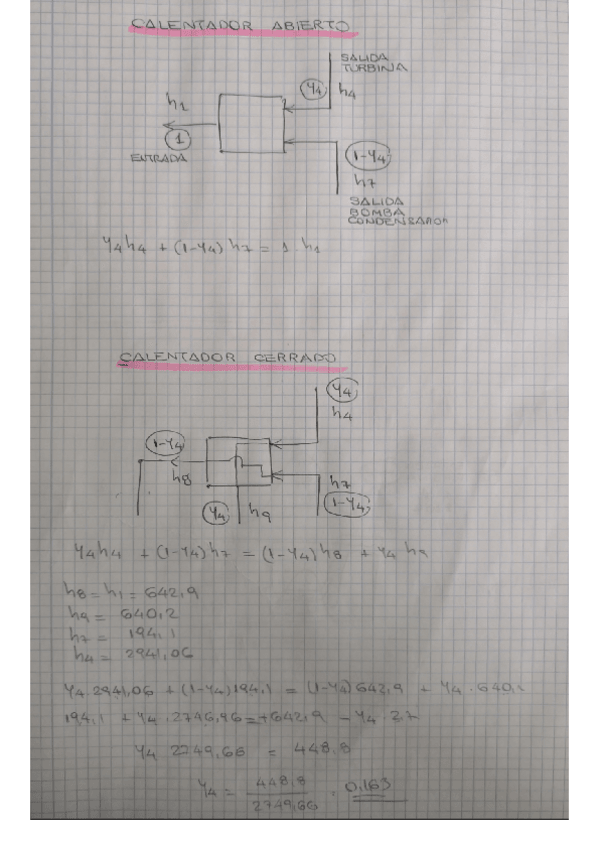 CALENTADOR ABIERTO
SALIDA
TURBINA
y4
h4
h1
1
ENTRADA
1-y4
h7
SALIDA
BOMBA
CONDENSADOR
y4h4 + (1-y4) h7 = 1 · h1
CALENTADOR CERRADO
y4
h4
1-y4
h8
h7
y4
h9
1-y4
y4h4 + (1-y4)h7 = (1-y4)h8 + y4 h9
h8 = h1 = 642,9
h9 = 640,2
h7 = 194,1
h4 = 2941,06
y4 · 2941,06 + (1-y4)194,1 = (1-y4)642,9 + y4 · 640,2
194,1 + y4 · 2746,96 = +642,9 - y4 · 2,7
y4 2749,66 = 448,8
y4 = 448,8 / 2749,66 = 0,163